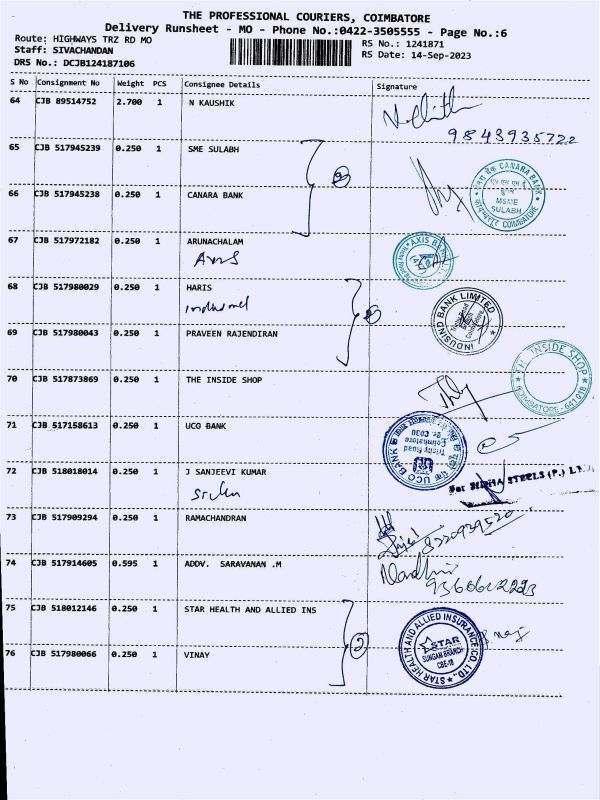 THE PROFESSIONAL COURIERS, COIMBATORE
Delivery Runsheet - MO - Phone No.:0422-3505555 - Page No.:6
Route: HIGHWAYS TRZ RD MO
RS No.: 1241871
Staff: SIVACHANDAN
RS Date: 14-Sep-2023
DRS No.: DCJB124187106
S No Consignment No Weight PCS Consignee Details Signature
64 CJB 89514752 2.700 1 N KAUSHIK
9843935722
65 CJB 517945239 0.250 1 SME SULABH
2
66 CJB 517945238 0.250 1 CANARA BANK
CANARA BANK
MSME
SULABH
COIMBATORE
67 CJB 517972182 0.250 1 ARUNACHALAM
Axis
AXIS BANK
68 CJB 517980029 0.250 1 HARIS
INDUSIND BANK LIMITED
69 CJB 517980043 0.250 1 PRAVEEN RAJENDIRAN
70 CJB 517873869 0.250 1 THE INSIDE SHOP
THE INSIDE SHOP
COIMBATORE - 641 018
71 CJB 517158613 0.250 1 UCO BANK
UCO BANK
Trichy Road
Coimbatore
72 CJB 518018014 0.250 1 J SANJEEVI KUMAR
For SIDHA STEELS (P.) LTD.,
73 CJB 517909294 0.250 1 RAMACHANDRAN
8220939520
74 CJB 517914605 0.595 1 ADDV. SARAVANAN .M
75 CJB 518012146 0.250 1 STAR HEALTH AND ALLIED INS
2
STAR HEALTH AND ALLIED INSURANCE CO. LTD.
STAR
SUNGAM BRANCH
CBE-18
76 CJB 517980066 0.250 1 VINAY